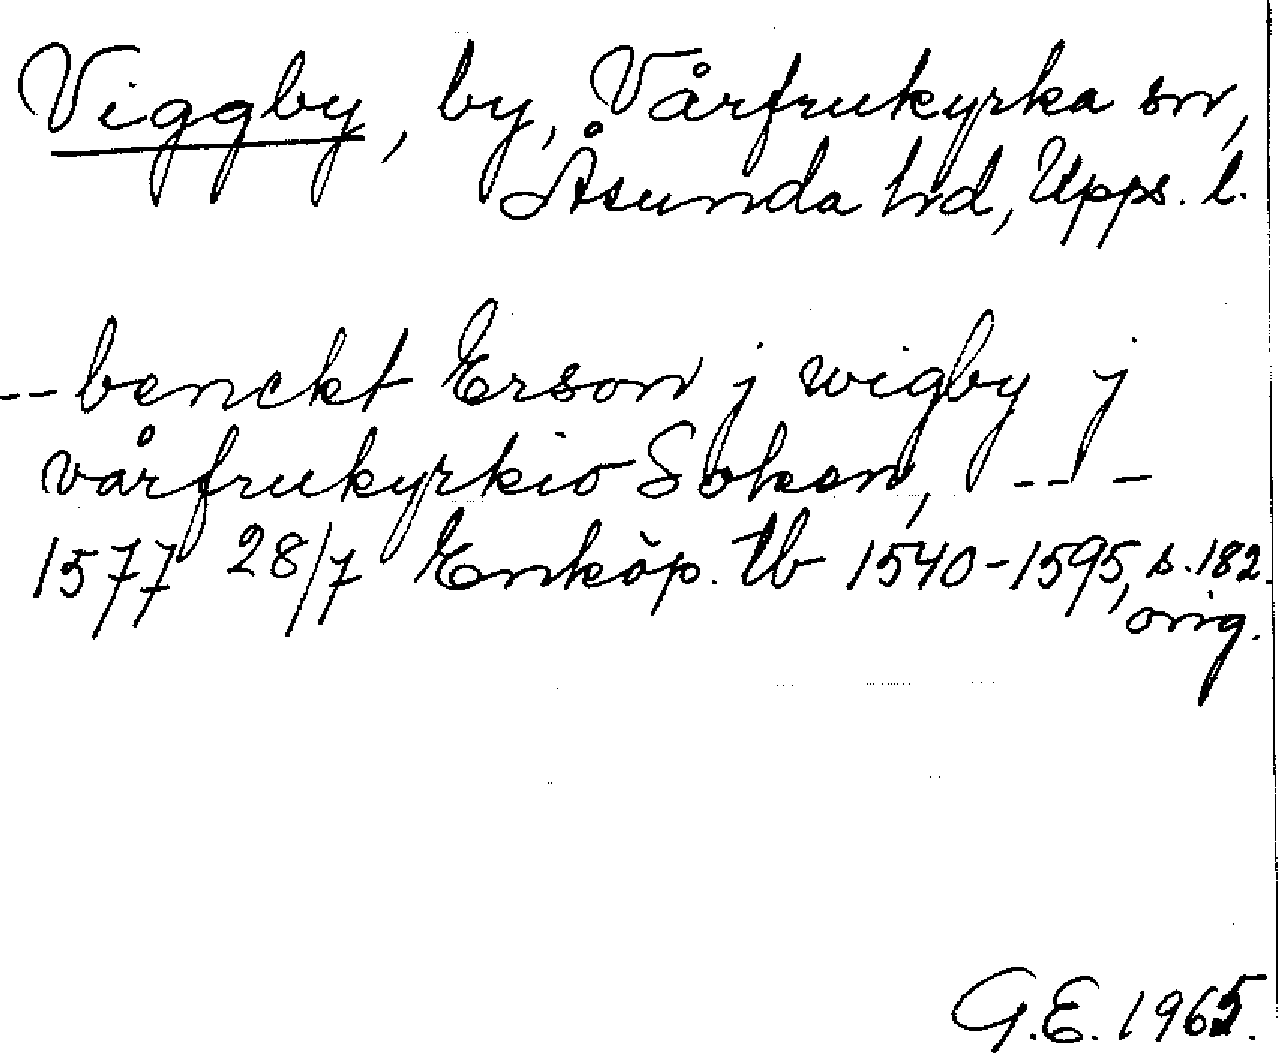 Viggby, by, Vårfrukyrka sn,
Åsunda hd, Upps. l.
-- benckt Erson j wigby j
vårfrukyrkio Soken, -- -
1577 28/7 Enköp. tb 1540-1595, s. 182.
orig.
G.E. 1965.